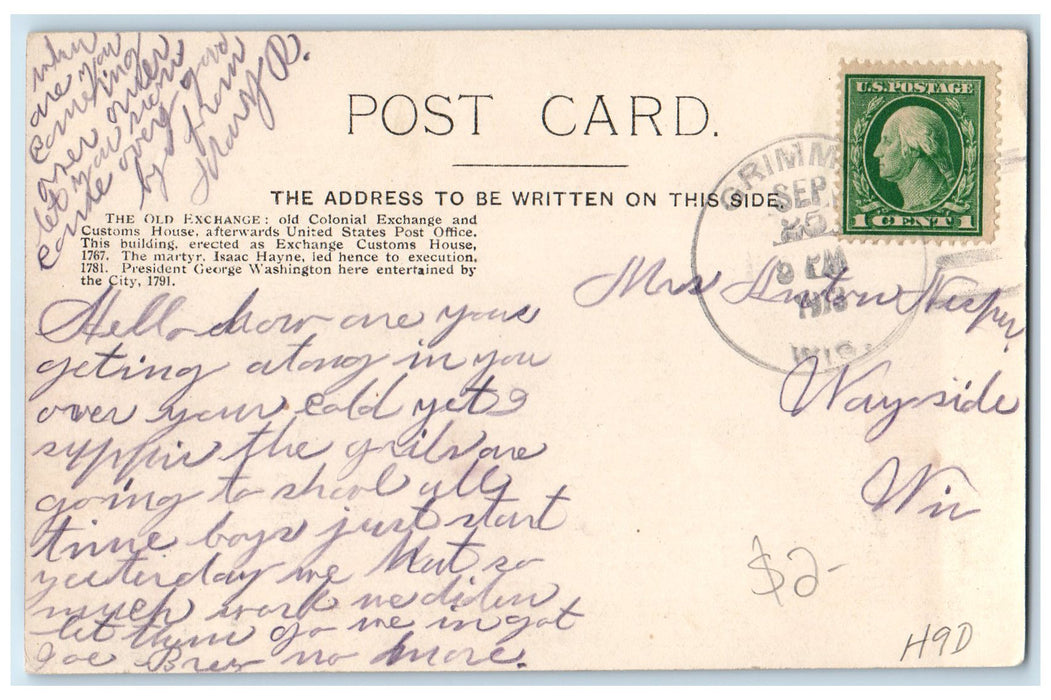 POST CARD.
THE ADDRESS TO BE WRITTEN ON THIS SIDE.
THE OLD EXCHANGE: old Colonial Exchange and
Customs House, afterwards United States Post Office.
This building, erected as Exchange Customs House,
1767. The martyr, Isaac Hayne, led hence to execution,
1781. President George Washington here entertained by
the City, 1791.
U.S. POSTAGE
1 CENT 1
GRIMM
SEP
25
PM
WIS.
Mrs Anton
Wayside
Wis
Hello how are you
geting along in you
over your cold yet
the grils are
going to shcool all
time boys just start
yesterday we Hat so
much work we diden
let them go we in got
Joe no more.
when
are you
comming
over
let you
over good
by from
Mary R.
$2-
H9D